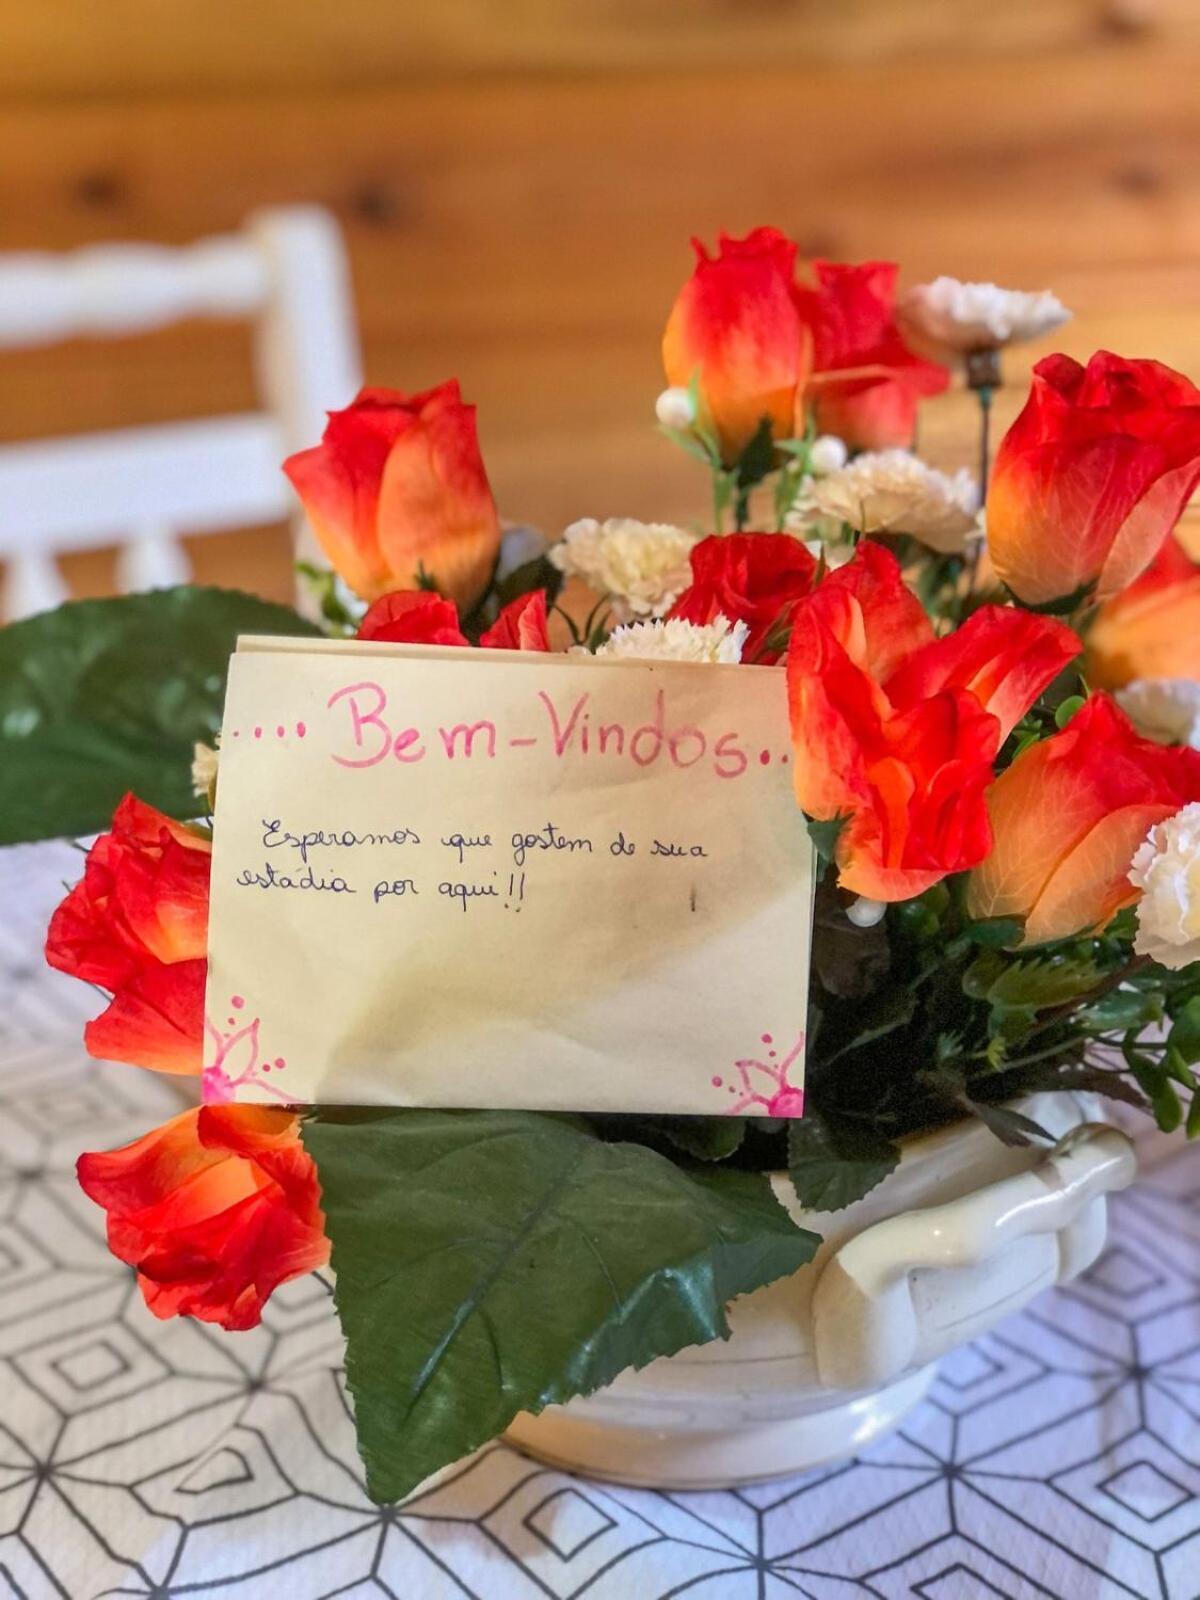 .... Bem-Vindos..
Esperamos que gostem de sua
estadia por aqui!!